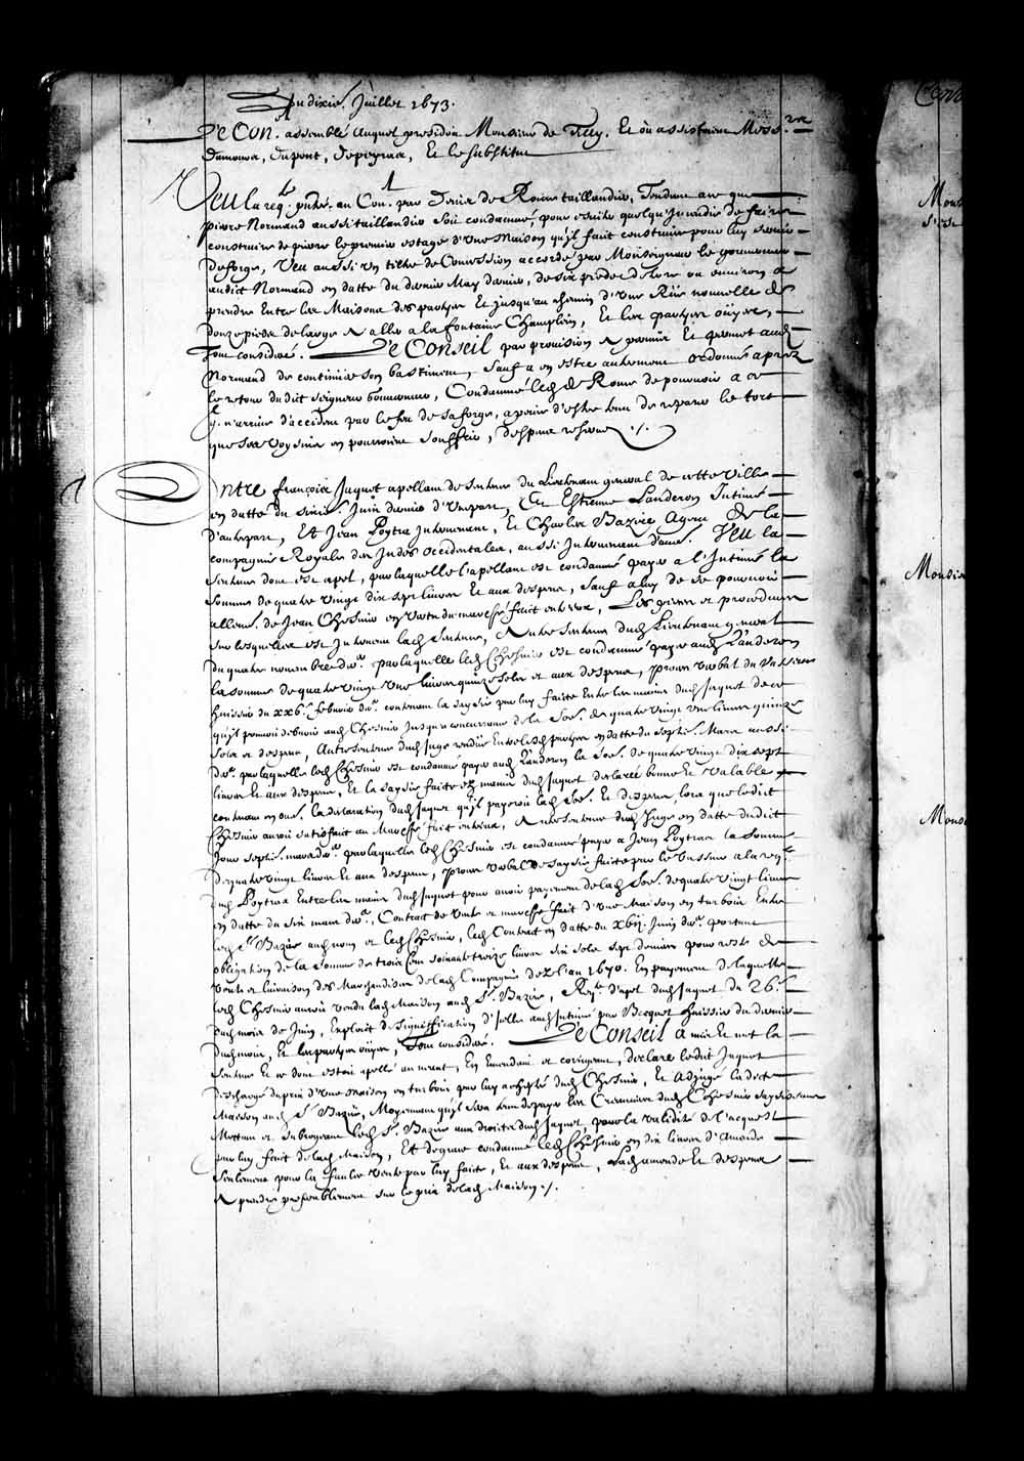 Du dixie. Juillet 1673.
Le Con. assemblé auquel presidoit Monsieur de Tilly. Et où assistoient Mess.rs
Damours, Dupont, Depeyras, Et le substitut
Veu la req.te pnte. au Con. par Denis de Rome taillandier, Tendante ace que
pierre Normand aussi taillandier soit condamné pour esviter quelqu'incendie de faire
construire de pierre le premier estage d'une maison qu'il fait construire pour luy servir
de forge, Veu aussi un tiltre de Concession accordé par Monseigneur le gouverneur
audict Normand en datte du dernier May dernier, de six pieds de terre ou environ a
prendre Entre les Maisons des partyes Et jusqu'au chemin d'une Rüe nouvelle de
douze pieds de large A aller a la fontaine Champlain, Et les partyes oüyes,
Tout consideré. Le Conseil par provision A permis Et permet aud.
Normand de continüer son bastiment, sauf a en estre autrement ordonné apres
le retour dudict seigneur Gouverneur, Condamné led. de Rome de pourvoir a ce
q. n'arrive d'accident par le feu de sa forge, a peine d'estre tenu de reparer le tort
que ses voysins en pourroient souffrir, despens reservez ./.
Entre françois Jaquet apellant de sentence du Lieutenant general de cette ville
en datte du Juin dernier d'Unepart, Et Estienne Landeron Intimé
d'autrepart, Et Jean Poytras Intervenant, Et Charles Bazire Agent de la
compagnie Royalle des Indes occidentales, aussi Intervenant d'autre. Veu la
sentence dont est apel, par laquelle l'apellant est condamné payer a l'Intimé la
somme de quatre vingt dix sept livres Et aux despens, sauf a luy de se pourvoir
allenc. de Jean Chesnier en vertu du marché fait entr'eux, Les pieces et procedures
sur lesquelles est Intervenu lad. sentence, Autre sentence dud. Lieutenant general
du quatre novembre d.er par laquelle led. Chesnier est condamné payer aud. Landeron
la somme de quatre vingt une livre quinze sols et aux despens, procez verbal du
huissier du xx6e. febvrier d.er contenant la saysie par luy faite Entre les mains dud. Jaquet de ce
qu'il pouvoit debvoir aud. Chesnier Jusqu'a concurrance de la Soe. de quatre vingt une livre quinze
sols et despens, Autre sentence dud. Juge rendüe Entre lesd. partyes en datte du septie. Mars aussi
d.er par laquelle led. Chesnier est condamné payer aud. Landeron la Soe. de quatre vingt dix sept
livres Et aux despens, Et la saysie faite ez mains dud. Jaquet declarée bonne Et valable
contenant en oue. la declaration dud. Jaquet qu'il payeroit lad. Soe. Et despens, lors que ledict
Chesnier auroit satisfait au Marché fait entr'eux, Autre sentence dud. Juge en datte dudict
Jour septie. mars d.er par laquelle led. Chesnier est condamné payer a Jean Poytras la somme
de quatre vingt livres Et aux despens, procez verbal de saysie faite par le Vasseur a la req.te
dud. Poytras Entre les mains dud. Jaquet pour avoir payement de lad. Soe. de quatre vingt livres
en datte du six mars d.er, Contract de vente et marché fait d'une Maison en tur boix Entre
led. Sr. Bazire aud. nom et led. Chesnier, led. Contract en datte du xbij. Juin d.er portant
obligation de la somme de trois cent soixante treize livres six sols sept deniers pour reste de
vente et livraison des Marchandises de lad. Compagnie dez l'an 1670. En payement de laquelle
led. Chesnier auroit vendu lad. Maison aud. Sr. Bazire, Req.te d'apel dud. Jaquet du 26e.
dud. mois de Juin, Exploit de signiffication d'icelle aud. Intimé par Becquet huissier du dernier
dud. mois, Et les partyes oüyes, Tout consideré. Le Conseil A mis Et met la
sentence Et ce dont estoit apellé au neant, En Emendant et corrigeant, declare ledit Jaquet
deschargé du prix d'une maison en tur boix par luy achepté dud. Chesnier, Et Adjugé ladicte
Maison aud. Sr. Bazire, Moyennant qu'il sera tenu de payer les Creanciers dud. Chesnier
Mettant et Subrogeant led. Sr. Bazire aux droicts dud. Jaquet, pour la validité de l'acquest
par luy fait de lad. Maison, Et de grace condamné led. Chesnier en dix livres d'Amende
seulement pour la fausse vente par luy faite, Et aux despens, Lad. amende Et despens
A prendre preferablement sur le prix de lad. Maison ./.